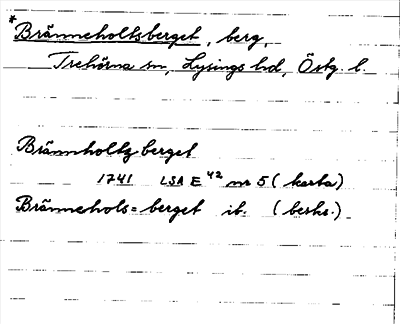 *Bränneholtsberget, berg,
Trehörna sn, Lysings hd, Östg. l.
Brännholtz berget
1741 LSA E 42 nr 5 (karta)
Brännehols= berget ib. (beskr.)